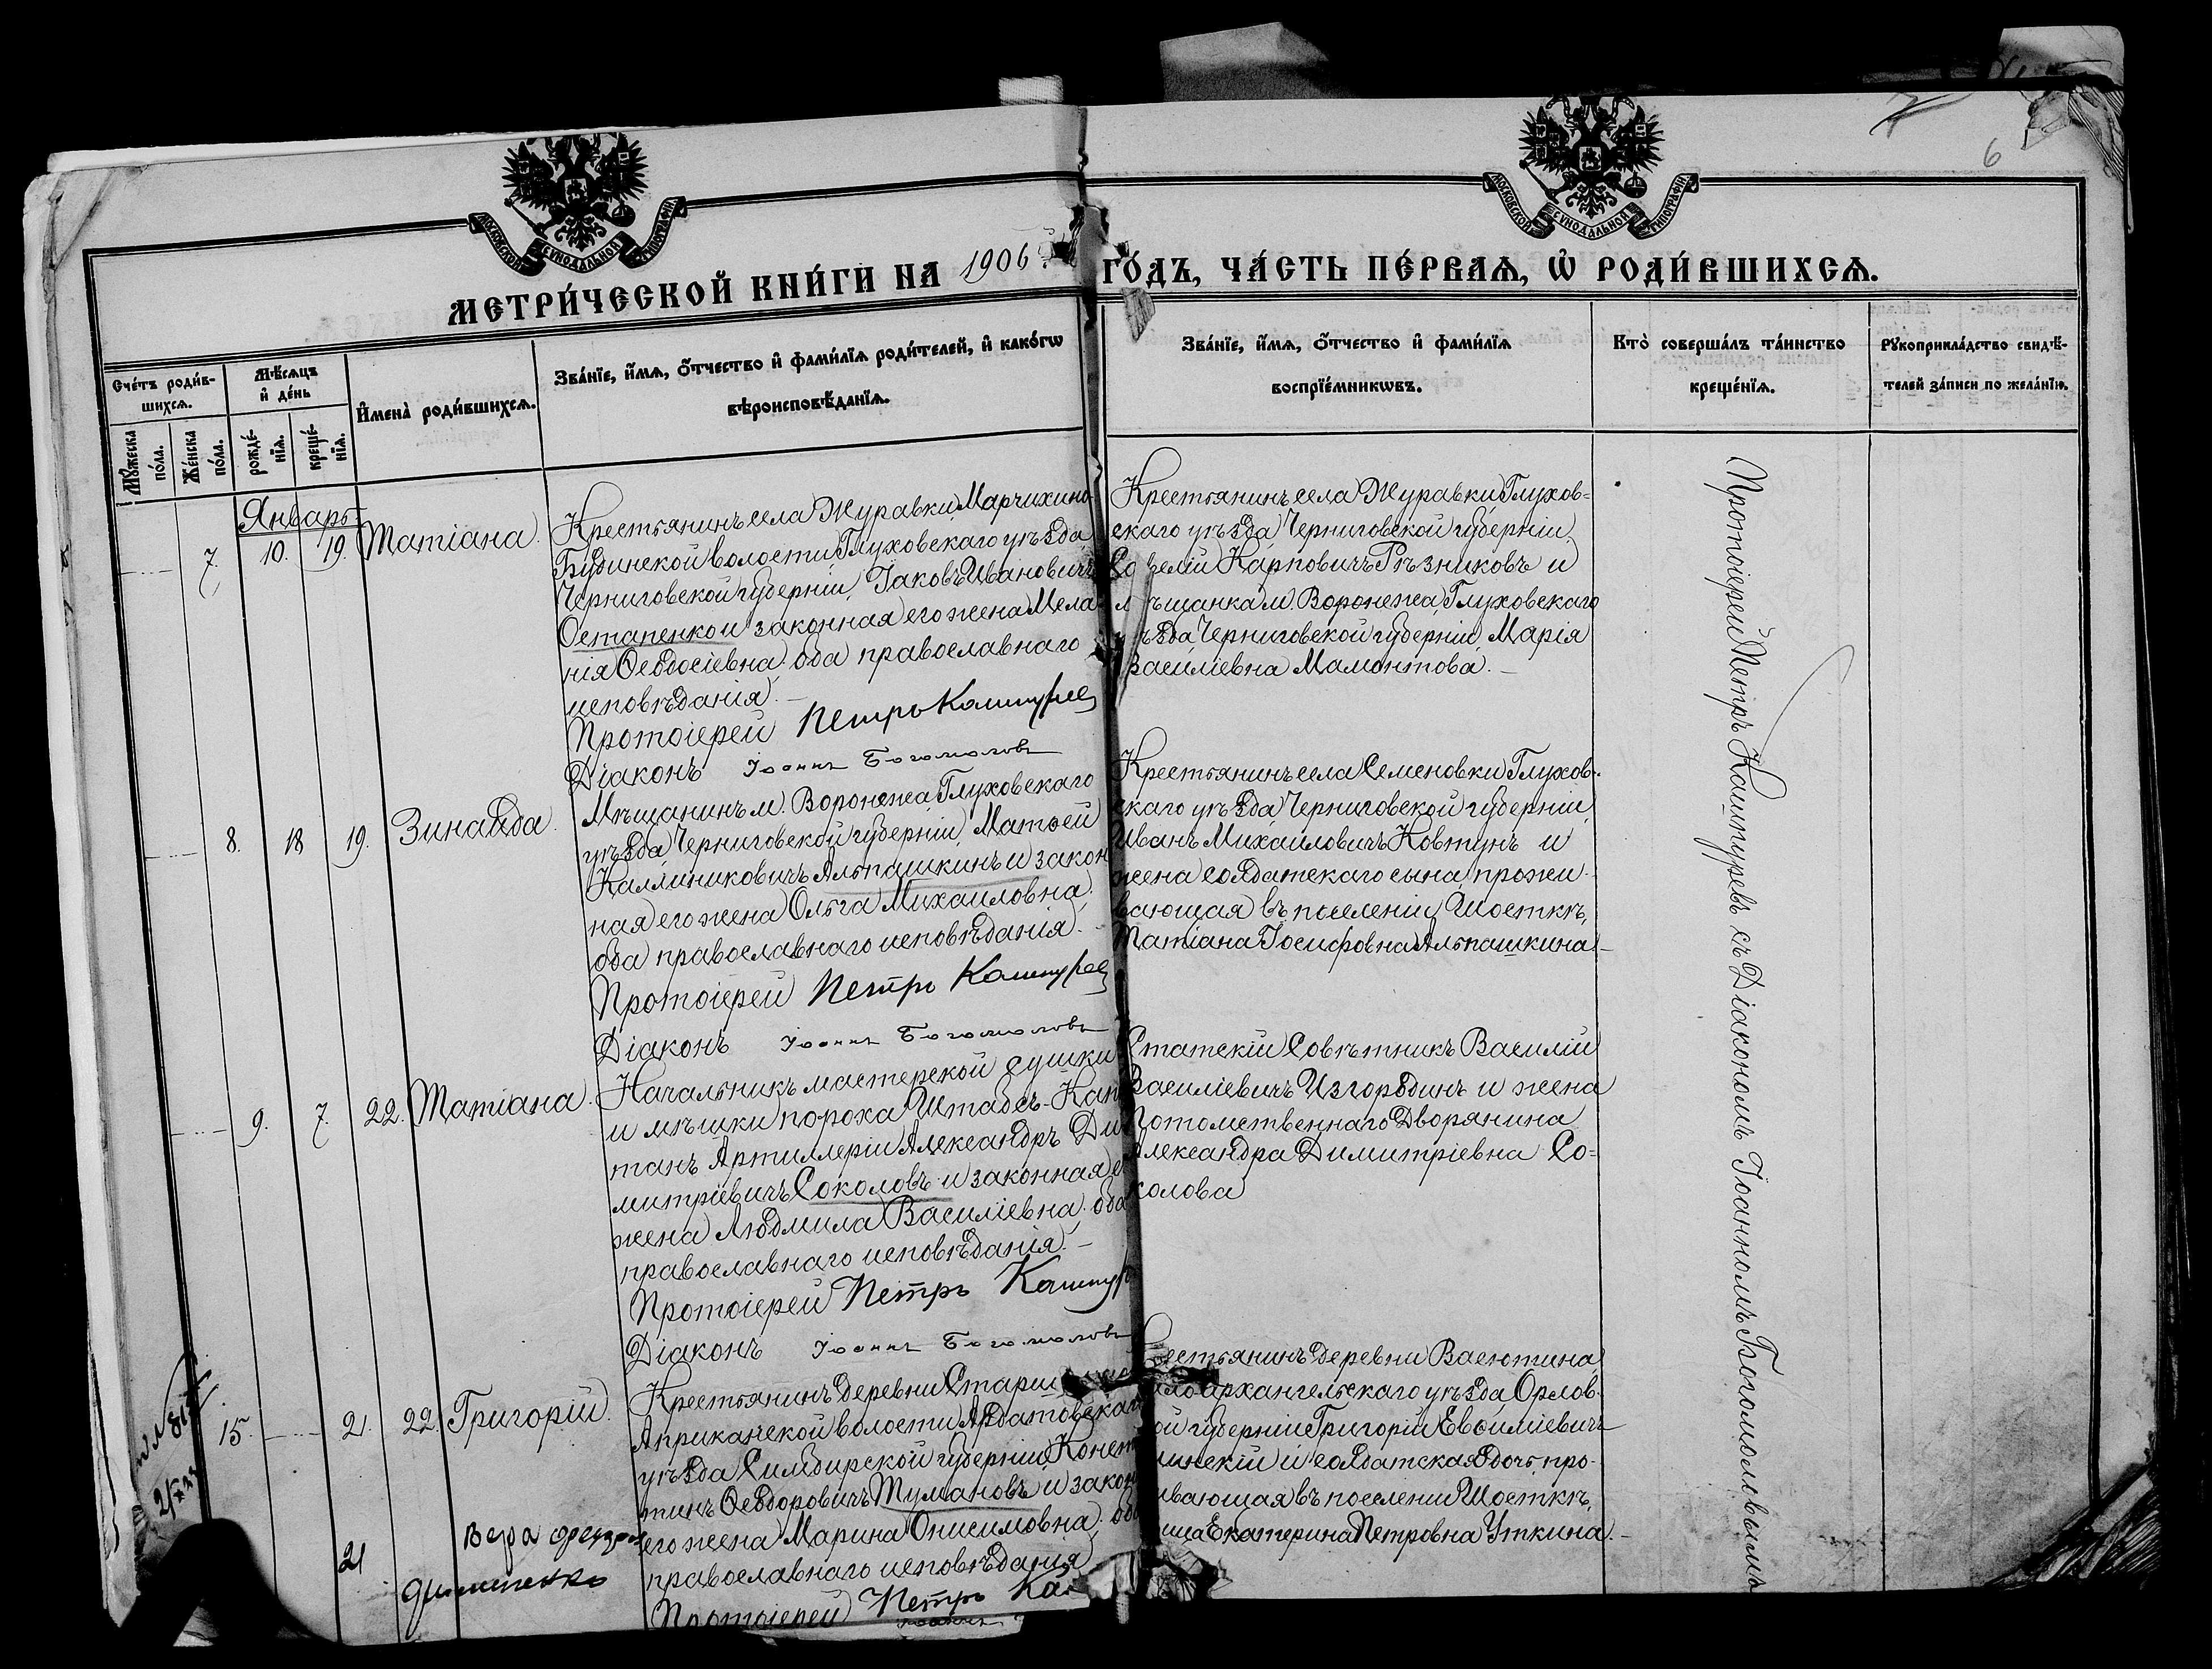 6
МОСКОВСКОЙ СѴНОДАЛЬНОЙ ТИПОГРАФІИ.
МОСКОВСКОЙ СѴНОДАЛЬНОЙ ТИПОГРАФІИ.
МЕТРИ́ЧЕСКОЙ КНИ́ГИ НА 1906 ГО́ДЪ, ЧА́СТЬ ПЕ́РВАѦ, Ѡ҆ РОДИ́ВШИХСѦ.
Сче́тъ роди́в-
шихсѧ.
Мꙋ́жеска
по́ла.
Же́нска
по́ла.
Мѣ́сѧцъ
и҆ де́нь
рожде́-
нїѧ.
креще́-
нїѧ.
И҆мена̀ роди́вшихсѧ.
Зва́нїе, и҆́мѧ, ѻ҆́тчество и҆ фами́лїѧ роди́телей, и҆ како́гѡ
вѣроисповѣ́данїѧ.
Зва́нїе, и҆́мѧ, ѻ҆́тчество и҆ фами́лїѧ
воспрїе́мникѡвъ.
Кто̀ соверша́лъ та́инство
креще́нїѧ.
Рꙋкоприкла́дство свидѣ́-
телей за́писи по жела́нїю.
Январь
7. 10. 19. Татіана.
Крестьянинъ села Журавки, Марчихино-
Будинской волости Глуховскаго уѣзда
Черниговской губерніи, Іаковъ Ивановичъ
Остапенко и законная его жена Мела-
нія Ѳеодосіевна, оба православнаго
исповѣданія.
Протоіерей Петръ Кашпурев
Діаконъ Іоаннъ Богомоловъ
Крестьянинъ села Журавки Глухов-
скаго уѣзда Черниговской губерніи,
Карповичъ Рѣзниковъ и
мѣщанка м. Воронежа, Глуховскаго
уѣзда Черниговской губерніи, Марія
Василіевна Мамонтова.
8. 18 19. Зинаида.
Мѣщанинъ м. Воронежа, Глуховскаго
уѣзда, Черниговской губерніи, Матѳей
Каллиниковичъ Альпашкинъ и закон
ная его жена Ольга Михаиловна,
оба православнаго исповѣданія.
Протоіерей Петръ Кашпурев
Діаконъ Іоаннъ Богомоловъ
Крестьянинъ села Семеновки Глухов-
скаго уѣзда Черниговской губерніи,
Иванъ Михаиловичъ Ковтунъ и
жена солдатскаго сына, прожи-
вающая въ поселеніи Шосткѣ,
Татіана Іосифовна Альпашкина.
9. 7. 22. Татіана.
Начальникъ мастерской сушки
и мѣшки пороха Штабсъ-Кап
танъ Артиллеріи Александръ Ди
митріевичъ Соколовъ и законная е
жена Людмила Василіевна, оба
православнаго исповѣданія.
Протоіерей Петръ Кашпур
Діаконъ Іоаннъ Богомоловъ
Статскій Совѣтникъ Василій
Василіевичъ Изгородинъ и жена
Потомственнаго Дворянина
Александра Димитріевна Со-
колова
15. 21. 22. Григорій.
Крестьянинъ деревни Стар
Априкансской волости Ардатовскаго
уѣзда Симбирской губерніи, Конст
тинъ Ѳеодоровичъ Тумановъ и закон
его жена Марина Онисимовна, оба
православнаго исповѣданія
Протоіерей Петръ Ка
Іоаннъ
рестьянинъ деревни Васютина
лоархангельскаго уѣзда, Орлов-
ой губерніи Григорій Евѳиміевичъ
инскій и солдатская дочь, про-
ивающая въ поселеніи Шосткѣ,
ица Екатерина Петровна Уткина.
21 Вера
Протоіерей Петръ Кашпуревъ съ Діакономъ Іоанномъ Богомоловымъ